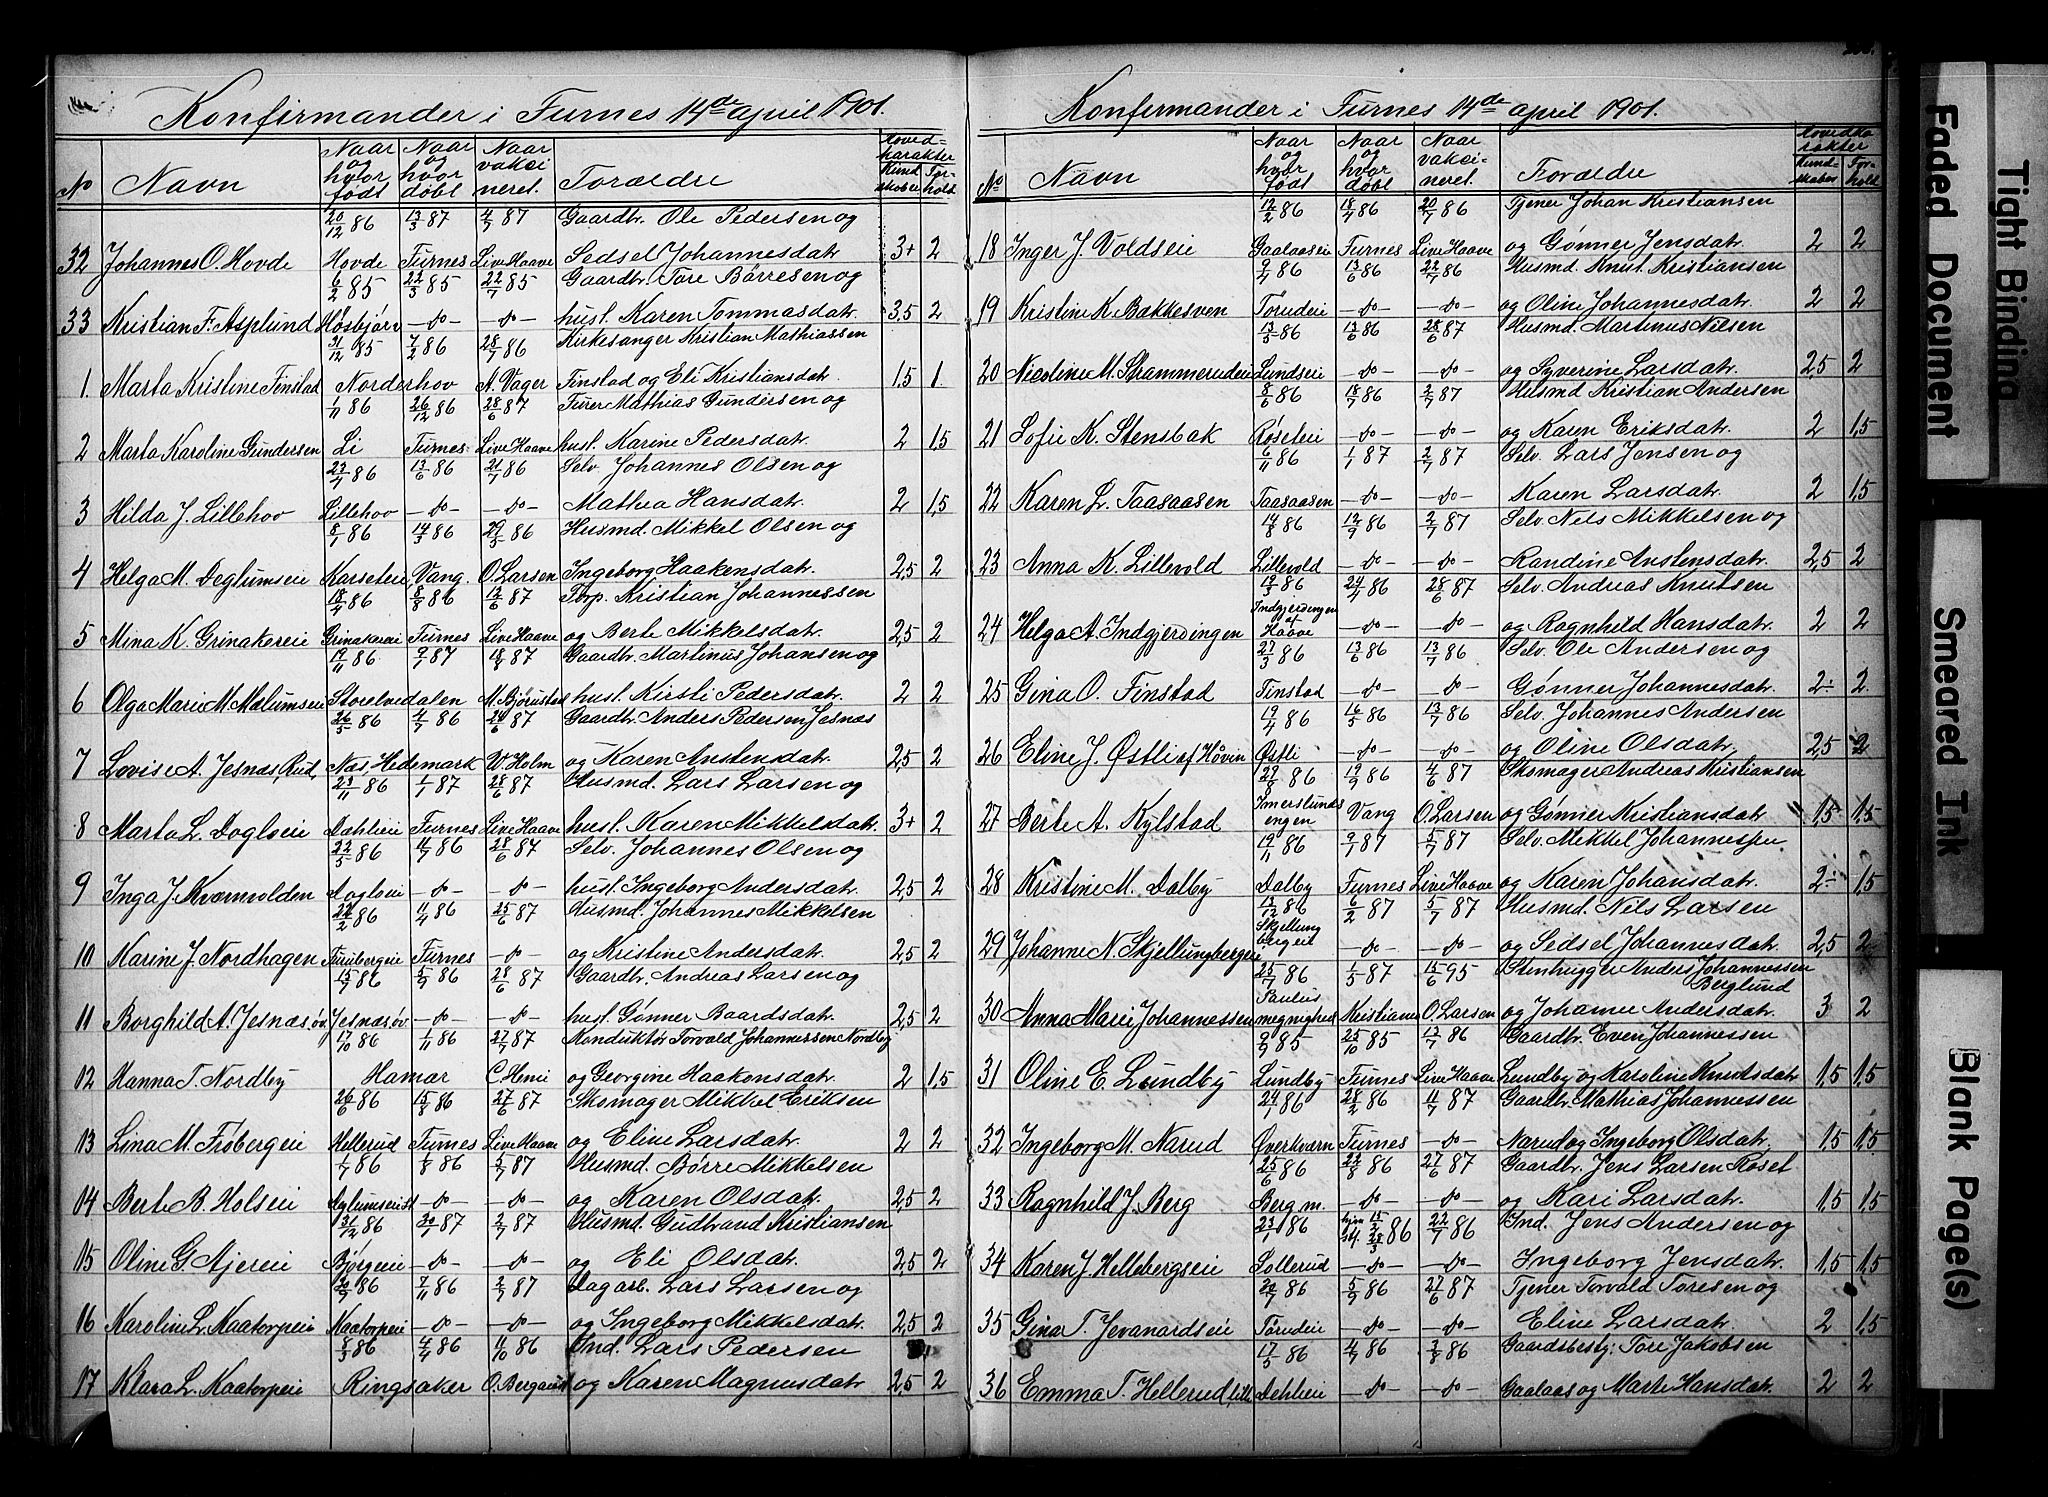 Konfirmander i Furnes 14de april 1901.
No Navn Naar og hvor født Naar og hvor døbt Naar vaksineret. Forældre Hovedkarakter Kundskaber Forhold
20/12 86 13/3 87 4/7 87 Gaardbr. Ole Pedersen og
32 Johannes O. Hovde Hovde Furnes Live Haave Sedsel Johannesdatr. 3+ 2
6/2 85 22/3 85 22/7 85 Gaardbr. Tore Børresen og
33 Kristian T. Asplund Høsbjør -do- -do- hust. Karen Tommasdatr. 3,5 2
21/12 85 7/2 86 28/7 86 Kirkesanger Kristian Mathiassen
1. Marta Kristine Finstad Norderhov A. Vager Finstad og Eli Kristiansdatr. 1,5 1.
1/11 86 26/12 86 28/6 87 Furer Mathias Gundersen og
2 Marta Karoline Gundersen Li Furnes Live Haave hust. Karine Pedersdatr. 2 1,5
23/4 86 13/6 86 21/7 86 Selv. Johannes Olsen og
3 Hilda J. Lillehov Lillehov -do- -do- Mathea Hansdatr. 2 1,5
8/1 86 14/3 86 29/5 86 Husmd. Mikkel Olsen og
4 Helga M. Deglumseie Karseteie Vang. O. Larsen Ingeborg Haakensdatr. 2,5 2
18/7 86 8/8 86 13/6 87 Torp. Kristian Johannessen
5 Mina K. Grinakereie Grinakereie Furnes Live Haave og Berte Mikkelsdatr. 2,5 2
19/11 86 9/1 87 18/7 87 Gaardbr. Martinus Johansen og
6 Olga Marie M. Mælumseie Storelvedalen M. Bjørnstad hust. Kirsti Pedersdatr. 2 2
26/5 86 4/7 86 24/6 87 Gaardbr. Anders Pedersen Jesnæs
7 Lovise A. Jesnæs, Rud, Næs Hedemark W. Holm og Karen Anstensdatr. 2,5 2
23/11 86 1/1 87 28/6 87 Husmd. Lars Larsen og
8 Marta L. Dogloeie Dahleie Furnes Live Haave hust. Karen Mikkelsdatr. 3+ 2
22/5 86 11/7 86 28/6 87 Selv. Johannes Olsen og
9 Inga J. Kværnvolden Dogloeie -do- -do- hust. Ingeborg Andersdatr. 2,5 2
22/2 86 11/4 86 25/6 87 Husmd. Johannes Mikkelsen
10 Karine J. Nordhagen Furubergeie Furnes -do- og Kristine Andersdatr. 2,5 2
15/7 86 5/9 86 28/6 87 Gaardbr. Andreas Larsen og
11 Borghild A. Jesnæs, øv. Jesnæs, øv. -do- -do- hust. Gønner Baardsdatr. 2,5 2
17/10 86 1/11 86 27/7 87 Konduktør Torvald Johannessen Nordby
12 Hanna T. Nordby Hamar C. Hœie og Georgine Haakonsdatr. 2 1,5
26/6 86 15/8 86 27/6 87 Skomager Mikkel Eriksen
13 Lina M. Frøbergeie Hellerud Furnes Live Haave og Eline Larsdatr. 2 2
1/7 86 1/8 86 5/7 87 Husmd. Børre Mikkelsen
14 Berte B. Holseie -do- -do- og Karen Olsdatr. 2,5 2
31/12 86 30/1 87 2/7 87 Husmd. Gudbrand Kristiansen
15 Oline G. Ajereie Bjørgeie -do- -do- og Eli Olsdatr. 2,5 2
20/9 86 7/11 86 2/7 87 Dagarb. Lars Larsen og
16 Karoline L. Kaatorpeie Kaatorpeie -do- -do- og Ingeborg Mikkelsdatr. 2,5 2
8/3 86 4/4 86 11/10 86 Ind. Lars Pedersen
17 Klara L. Kaatorpeie Ringsaker O. Bergaust og Karen Magnusdatr. 2,5 2
Konfirmander i Furnes 14de april 1901.
No Navn Naar og hvor født Naar og hvor døbt Naar vaksineret. Forældre Hovedkarakter Kundskaber Forhold
12/2 86 18/4 86 20/7 86 Tjener Johan Kristiansen
18 Inger J. Voldseie Gaalaaseie Furnes Live Haave og Gønner Jensdatr. 2 2
9/4 86 13/6 86 22/7 86 Husmd. Knut Kristiansen
19 Kristine K. Bakkesven Torudeie -do- -do- og Oline Johannesdatr. 2 2
13/5 86 13/6 86 28/6 87 Husmd. Martinus Nilsen
20 Nicoline M. Strammerudeie Lundseie -do- -do- og Syverine Larsdatr. 2,5 2
8/6 86 18/7 86 2/7 87 Husmd Kristian Andersen
21 Sofie K. Stensbak Røseteie -do- -do- og Karen Eriksdatr. 2 1,5
6/11 86 1/1 87 2/7 87 Selv. Lars Jensen og
22 Karen L. Taasaasen Taasaasen -do- -do- Karen Larsdatr. 2 1,5
14/8 86 12/9 86 2/7 87 Selv. Nils Mikkelsen og
23 Anna K. Lillevold Lillevold -do- -do- Randine Anstensdatr. 2,5 2
19/3 86 24/4 86 28/6 87 Selv. Andreas Knutsen
24 Helga A. Indgjerdingen Indgjerdingen af Haave -do- -do- og Ragnhild Hansdatr. 2 2
27/3 86 13/6 86 13/7 86 Selv. Ole Andersen og
25 Gina O. Finstad Finstad -do- -do- Gønner Johannesdatr. 2÷ 2
19/4 86 16/5 86 13/7 86 Selv. Johannes Andersen
26 Eline J. Østli af Hovin Østli -do- -do- og Oline Olsdatr. 2,5 2
29/8 86 19/9 86 4/6 87 Skomager Andreas Kristiansen
27 Berte A. Kylstad Imerslundsengen Vang O. Larsen og Gønner Kristiansdatr. 1,5 1,5
19/11 86 9/1 87 5/7 87 Selv. Mikkel Johannessen
28 Kristine M. Dalby Dalby Furnes Live Haave og Karen Johansdatr. 2÷ 1,5
13/12 86 6/2 87 5/7 87 Husmd. Nils Larsen
29 Johanne N. Skjellungbergeie Skjellungbergeie -do- -do- og Sedsel Johannesdatr. 2,5 2
25/7 86 1/5 87 15/6 95 Stenhugger Anders Johannessen Berglund
30 Anna Marie Johannessen Paulus megnighed Kristiania O. Larsen og Johanne Andersdatr. 3 2
9/9 85 25/10 85 13/7 86 Gaardbr. Even Johannessen
31 Oline E. Lundby Lundby Furnes Live Haave Lundby og Karoline Knutsdatr. 1,5 1,5
24/1 86 28/2 86 11/7 87 Gaardbr. Mathias Johannessen
32 Ingeborg M. Narud Øverkværn Furnes -do- Narud og Ingeborg Olsdatr. 1,5 1,5
25/6 86 22/8 86 27/6 87 Gaardbr. Jens Larsen Roset
33 Ragnhild J. Berg Berg m. -do- -do- og Kari Larsdatr. 1,5 1,5
23/1 86 hjem 15/2 st. 28/3 86 22/7 86 Ind. Jens Andersen og
34 Karen J. Hellebergseie Sollerud -do- -do- Ingeborg Jensdatr. 1,5 1,5
20/7 86 5/9 86 27/6 87 Tjener Torvald Toresen og
35 Gina T. Jevanardseie Torudeie -do- -do- Eline Larsdatr. 2 1,5
17/5 86 4/7 86 3/8 86 Gaardsbesty: Tore Jakobsen
36 Emma T. Hellerud, lille Dehleie -do- -do- Gaalaas og Marte Hansdatr. 2 2
Tight Binding
Faded Document
Smeared Ink
Blank Page(s)